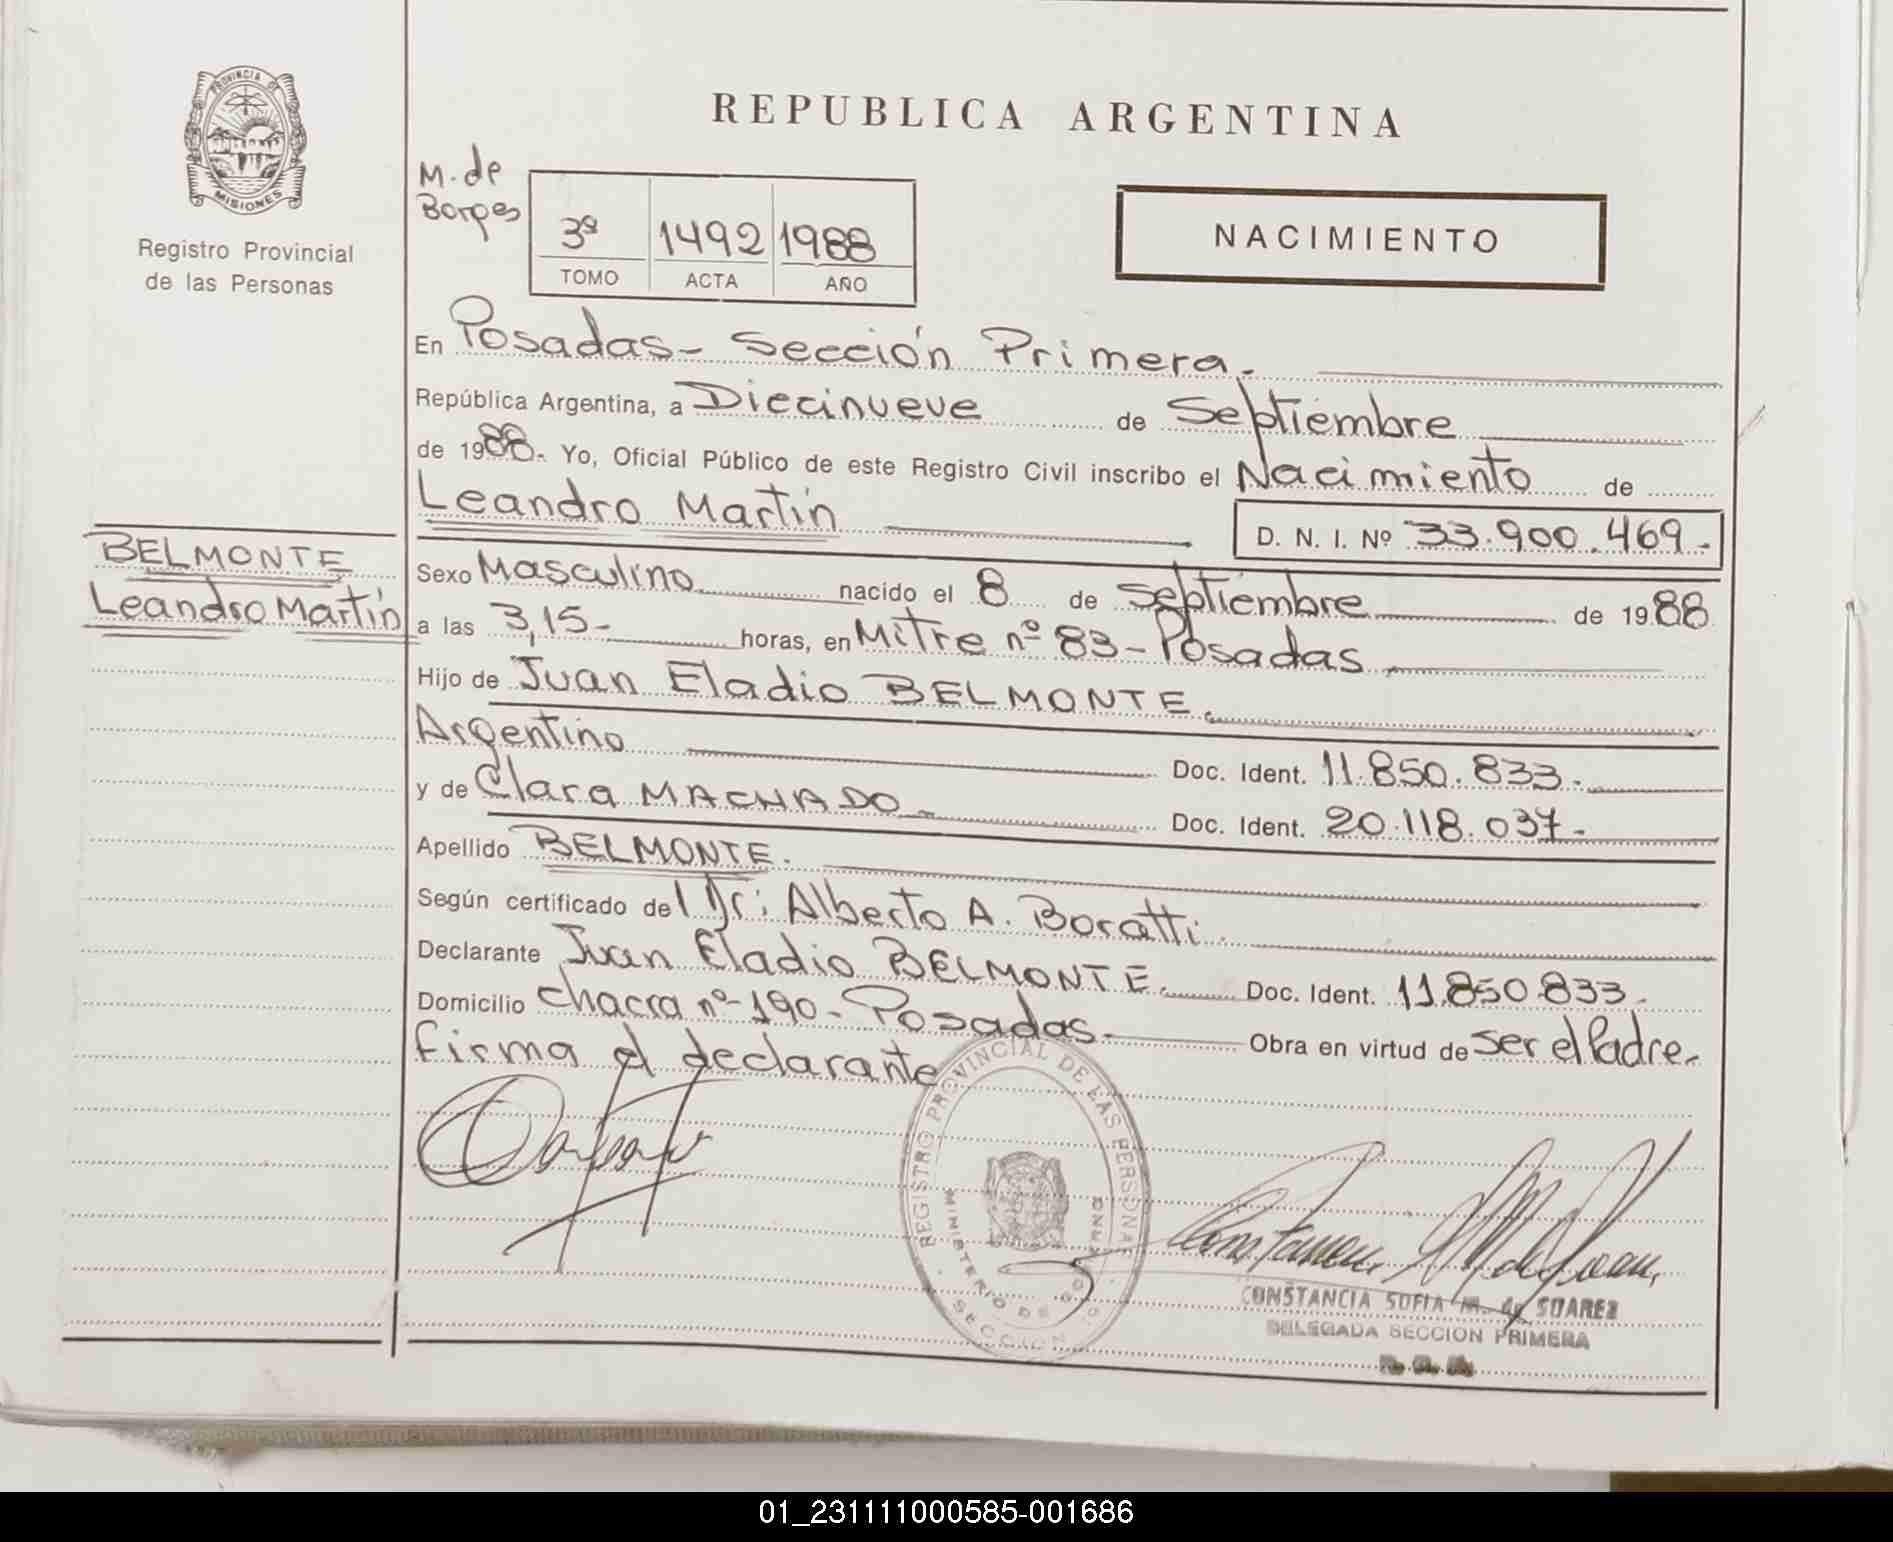 PROVINCIA DE
MISIONES
Registro Provincial
de las Personas
REPUBLICA ARGENTINA
M. de
Borges
3º 1492 1988
TOMO ACTA AÑO
NACIMIENTO
En Posadas - Sección Primera.
República Argentina, a Diecinueve de Septiembre
de 1988. Yo, Oficial Público de este Registro Civil inscribo el Nacimiento de
Leandro Martín D. N. I. Nº 33.900.469.-
BELMONTE
Leandro Martín
Sexo Masculino nacido el 8 de Septiembre de 1988
a las 3,15- horas, en Mitre nº 83 - Posadas
Hijo de Juan Eladio BELMONTE.
Argentino Doc. Ident. 11.850.833.-
y de Clara MACHADO - Doc. Ident. 20.118.037.-
Apellido BELMONTE.
Según certificado del Dr: Alberto A. Boratti.
Declarante Juan Eladio BELMONTE. Doc. Ident. 11.850.833.
Domicilio chacra nº 190 - Posadas. Obra en virtud de ser el Padre.
firma el declarante
REGISTRO PROVINCIAL DE LAS PERSONAS
MINISTERIO DE GOBIERNO
SECCION
CONSTANCIA SOFIA M. de SUAREZ
DELEGADA SECCION PRIMERA
01_231111000585-001686